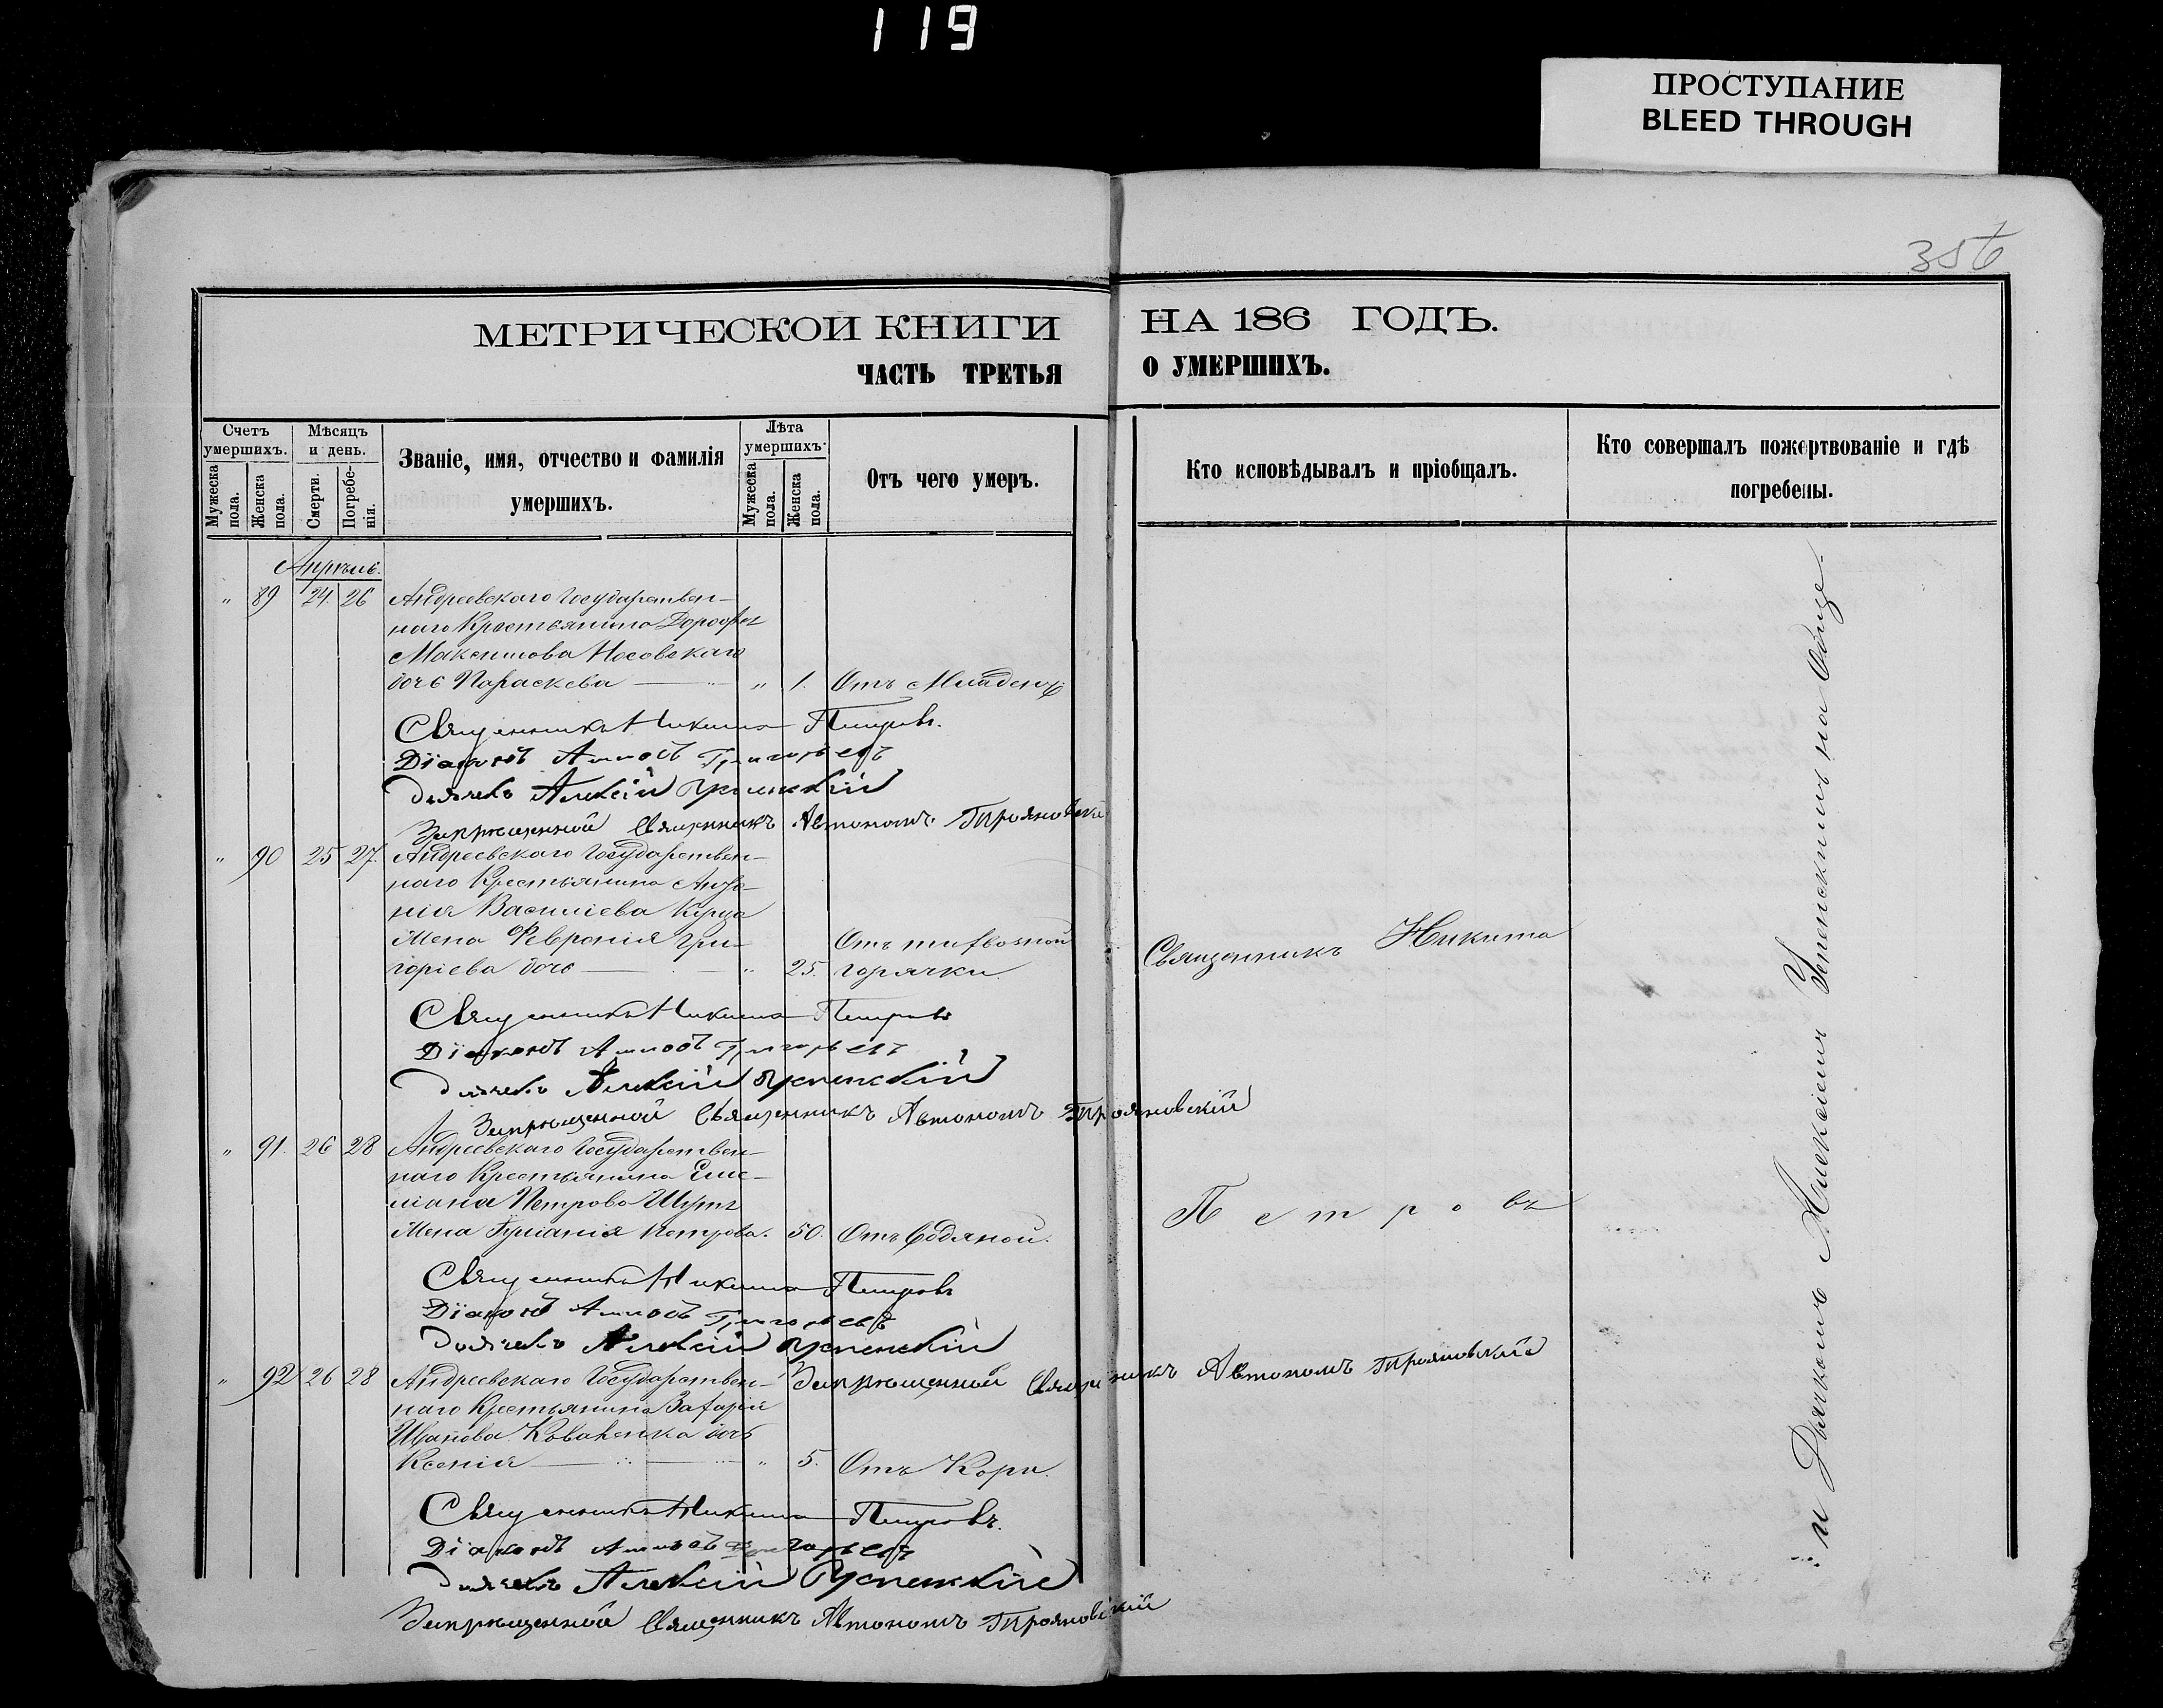 119
ПРОСТУПАНИЕ
BLEED THROUGH
356
МЕТРИЧЕСКОЙ КНИГИ НА 186 ГОДЪ.
ЧАСТЬ ТРЕТЬЯ О УМЕРШИХЪ.
Счетъ умершихъ.
Мужеска пола.
Женска пола.
Мѣсяцъ и день.
Смерти.
Погребенія.
Званіе, имя, отчество и фамилія умершихъ.
Лѣта умершихъ.
Мужеска пола.
Женска пола.
Отъ чего умеръ.
Кто исповѣдывалъ и пріобщалъ.
Кто совершалъ пожертвованіе и гдѣ погребены.
Апрѣль.
" 89 24 26 Андреевскаго Государствен-
наго Крестьянина Дорофея
Максимова Носовскаго
дочь Параскева " 1. Отъ Младенч
Священникъ Никита Петровъ.
Діаконъ Григорьевъ
Дьячекъ Алексій Успенскій
Запрещенной Священникъ Автономъ Трояновскій
" 90 25 27. Андреевскаго Государствен-
наго Крестьянина
нія Василіева
Жена Февронія Гри- Отъ тифозной
горіева дочь " 25. горячки.
Священникъ Никита Петровъ
Діаконъ Григорьевъ
Дьячекъ Алексій Успенскій
Запрещенной Священникъ Автономъ Трояновскій
" 91. 26 28 Андреевскаго Государствен-
наго Крестьянина Еме-
ліана Петрова
Жена Іуліанія Петрова. 50. Отъ Водяной.
Священникъ Никита Петровъ
Діаконъ Григорьевъ
Дьячекъ Алексій Успенскій
" 92 26 28 Андреевскаго Государствен-
Запрещенной Священникъ Автономъ Трояновскій
наго Крестьянина Захарія
Иванова Коваленка дочь
Ксенія " 5. Отъ Кори.
Священникъ Никита Петровъ.
Діаконъ Григорьевъ
Дьячекъ Алексій Успенскій
Запрещенной Священникъ Автономъ Трояновскій
Священникъ Никита
Петровъ
и Дьячкомъ Алексіемъ Успенскимъ на